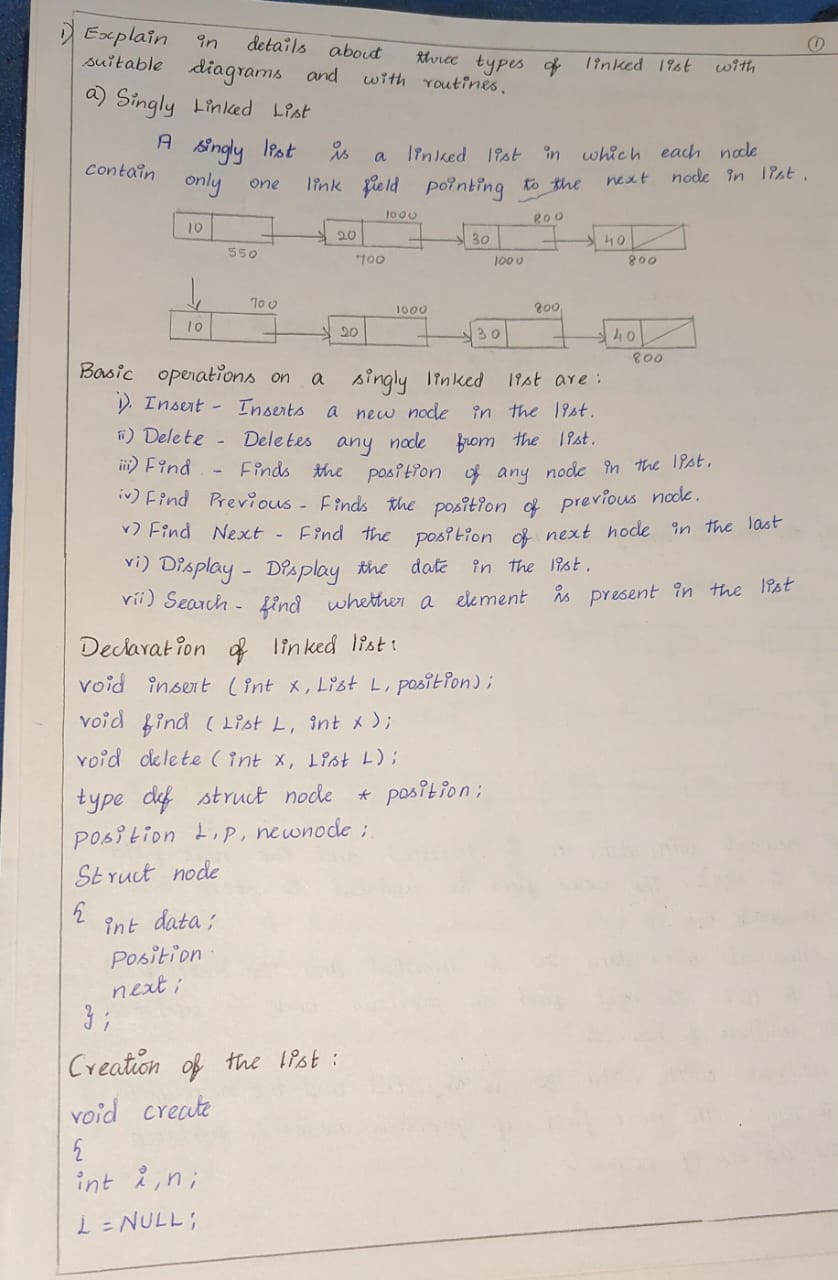 ①
i) Explain in details about three types of linked list with
suitable diagrams and with routines.
a) Singly Linked List
A singly list is a linked list in which each node
contain only one link field pointing to the next node in list.
1000 800
10 20 30 40
550 700 1000 800
700 1000 800
10 20 30 40
800
Basic operations on a singly linked list are:
i). Insert - Inserts a new node in the list.
ii) Delete - Deletes any node from the list.
iii) Find - Finds the position of any node in the list.
iv) Find Previous - Finds the position of previous node.
v) Find Next - Find the position of next node in the last
vi) Display - Display the date in the list.
vii) Search - find whether a element is present in the list
Declaration of linked list:
void insert (int x, List L, position);
void find (List L, int x);
void delete (int x, List L);
type def struct node * position;
position L, p, newnode;
Struct node
{ int data;
Position
next;
};
Creation of the list:
void create
{
int i, n;
L = NULL;